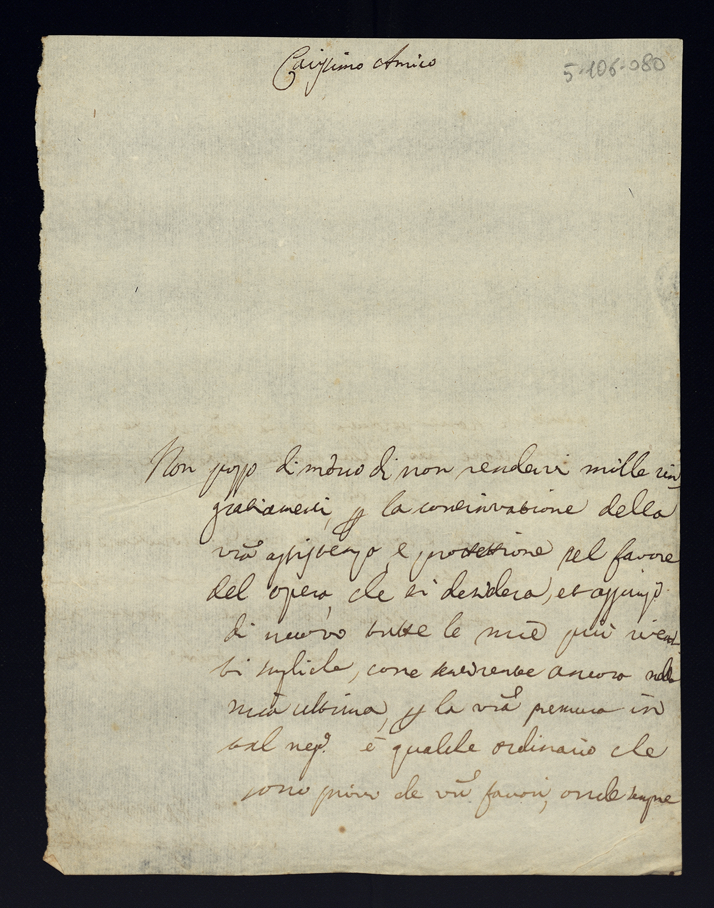 Carissimo Amico
5-106-080
Non posso di meno di non rendervi mille rin
gratiamenti, p la continuatione della
vrã assistenza, e protettione pel favore
del opera, che si desidera, et aggiungo
di nuovo tutte le mie più
suppliche, come sentirete ancora nella
mia ultima, p la vrã premura in
tal neg.º è qualche ordinario che
sono privo de vri favori, onde sempre